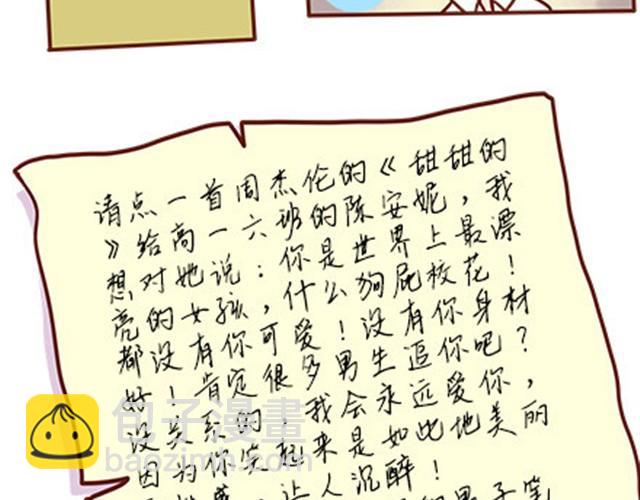 请点一首周杰伦的《甜甜的
》给高一六班的陈安妮，我
想对她说：你是世界上最漂
亮的女孩，什么狗屁校花！
都没有你可爱！没有你身材
好！肯定很多男生追你吧？
没关系的！我会永远爱你，
因为你笑起来是如此地美丽
让人沉醉！
包子漫畫
baozimh.com